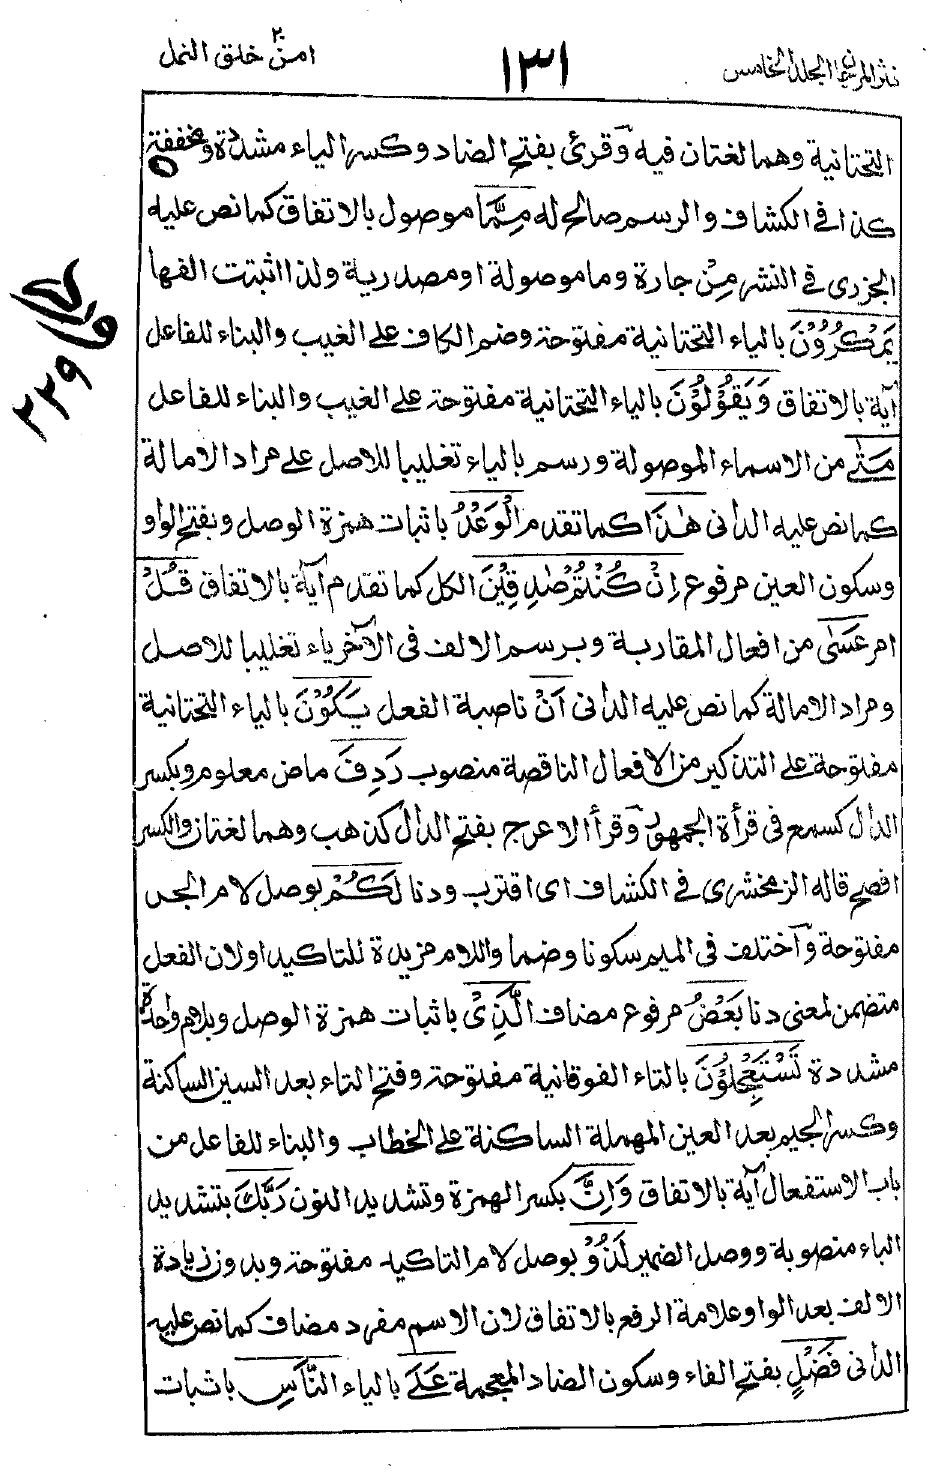 نثر المرجان المجلد الخامس
١٣١
امن ٢٠ خلق النمل
التحتانية وهما لغتان فيه وَقرئ بفتح الضاد وكسر الياء مشددة ومخففة
كذا في الكشاف والرسم صالح له مِمَّا موصول بالاتفاق كما نص عليه
الجزرى في النشر مِنْ جارة وما موصولة او مصدرية ولذا اثبتت الفها
يَمْكُرُوْنَ بالياء التحتانية مفتوحة وضم الكاف على الغيب والبناء للفاعل
آية بالاتفاق وَيَقُوْلُوْنَ بالياء التحتانية مفتوحة على الغيب والبناء للفاعل
مَتٰى من الاسماء الموصولة ورسم بالياء تغليبا للاصل على مراد الامالة
كما نص عليه الدانى هٰذَا كما تقدم الْوَعْدُ باثبات همزة الوصل وبفتح الواو
وسكون العين مرفوع اِنْ كُنْتُمْ صٰدِقِيْنَ الكل كما تقدم آية بالاتفاق قُلْ
امر عَسٰى من افعال المقاربة وبرسم الالف فى الآخر ياء تغليبا للاصل
ومراد الامالة كما نص عليه الدانى اَنْ ناصبة الفعل يَكُوْنَ بالياء التحتانية
مفتوحة على التذكير من الافعال الناقصة منصوب رَدِفَ ماض معلوم وبكسر
الدال كسمع فى قرأة الجمهور وَقرأ الاعرج بفتح الدال كذهب وهما لغتان والكسر
افصح قاله الزمخشرى في الكشاف اى اقترب ودنا لَكُمْ بوصل لام الجر
مفتوحة وَاختلف فى الميم سكونا وضما واللام مزيدة للتاكيد او لان الفعل
متضمن لمعنى دنا بَعْضُ مرفوع مضاف الَّذِىْ باثبات همزة الوصل وبلام واحدة
مشددة تَسْتَعْجِلُوْنَ بالتاء الفوقانية مفتوحة وفتح التاء بعد السين الساكنة
وكسر الجيم بعد العين المهملة الساكنة على الخطاب والبناء للفاعل من
باب الاستفعال آية بالاتفاق وَاِنَّ بكسر الهمزة وتشديد النون رَبَّكَ بتشديد
الباء منصوبة ووصل الضمير لَذُوْ بوصل لام التاكيد مفتوحة وبدون زيادة
الالف بعد الواو علامة الرفع بالاتفاق لان الاسم مفرد مضاف كما نص عليه
الدانى فَضْلٍ بفتح الفاء وسكون الضاد المعجمة عَلَى بالياء النَّاسِ باثبات
٢٢٩